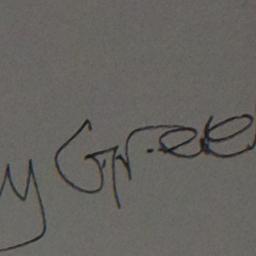 y Gree